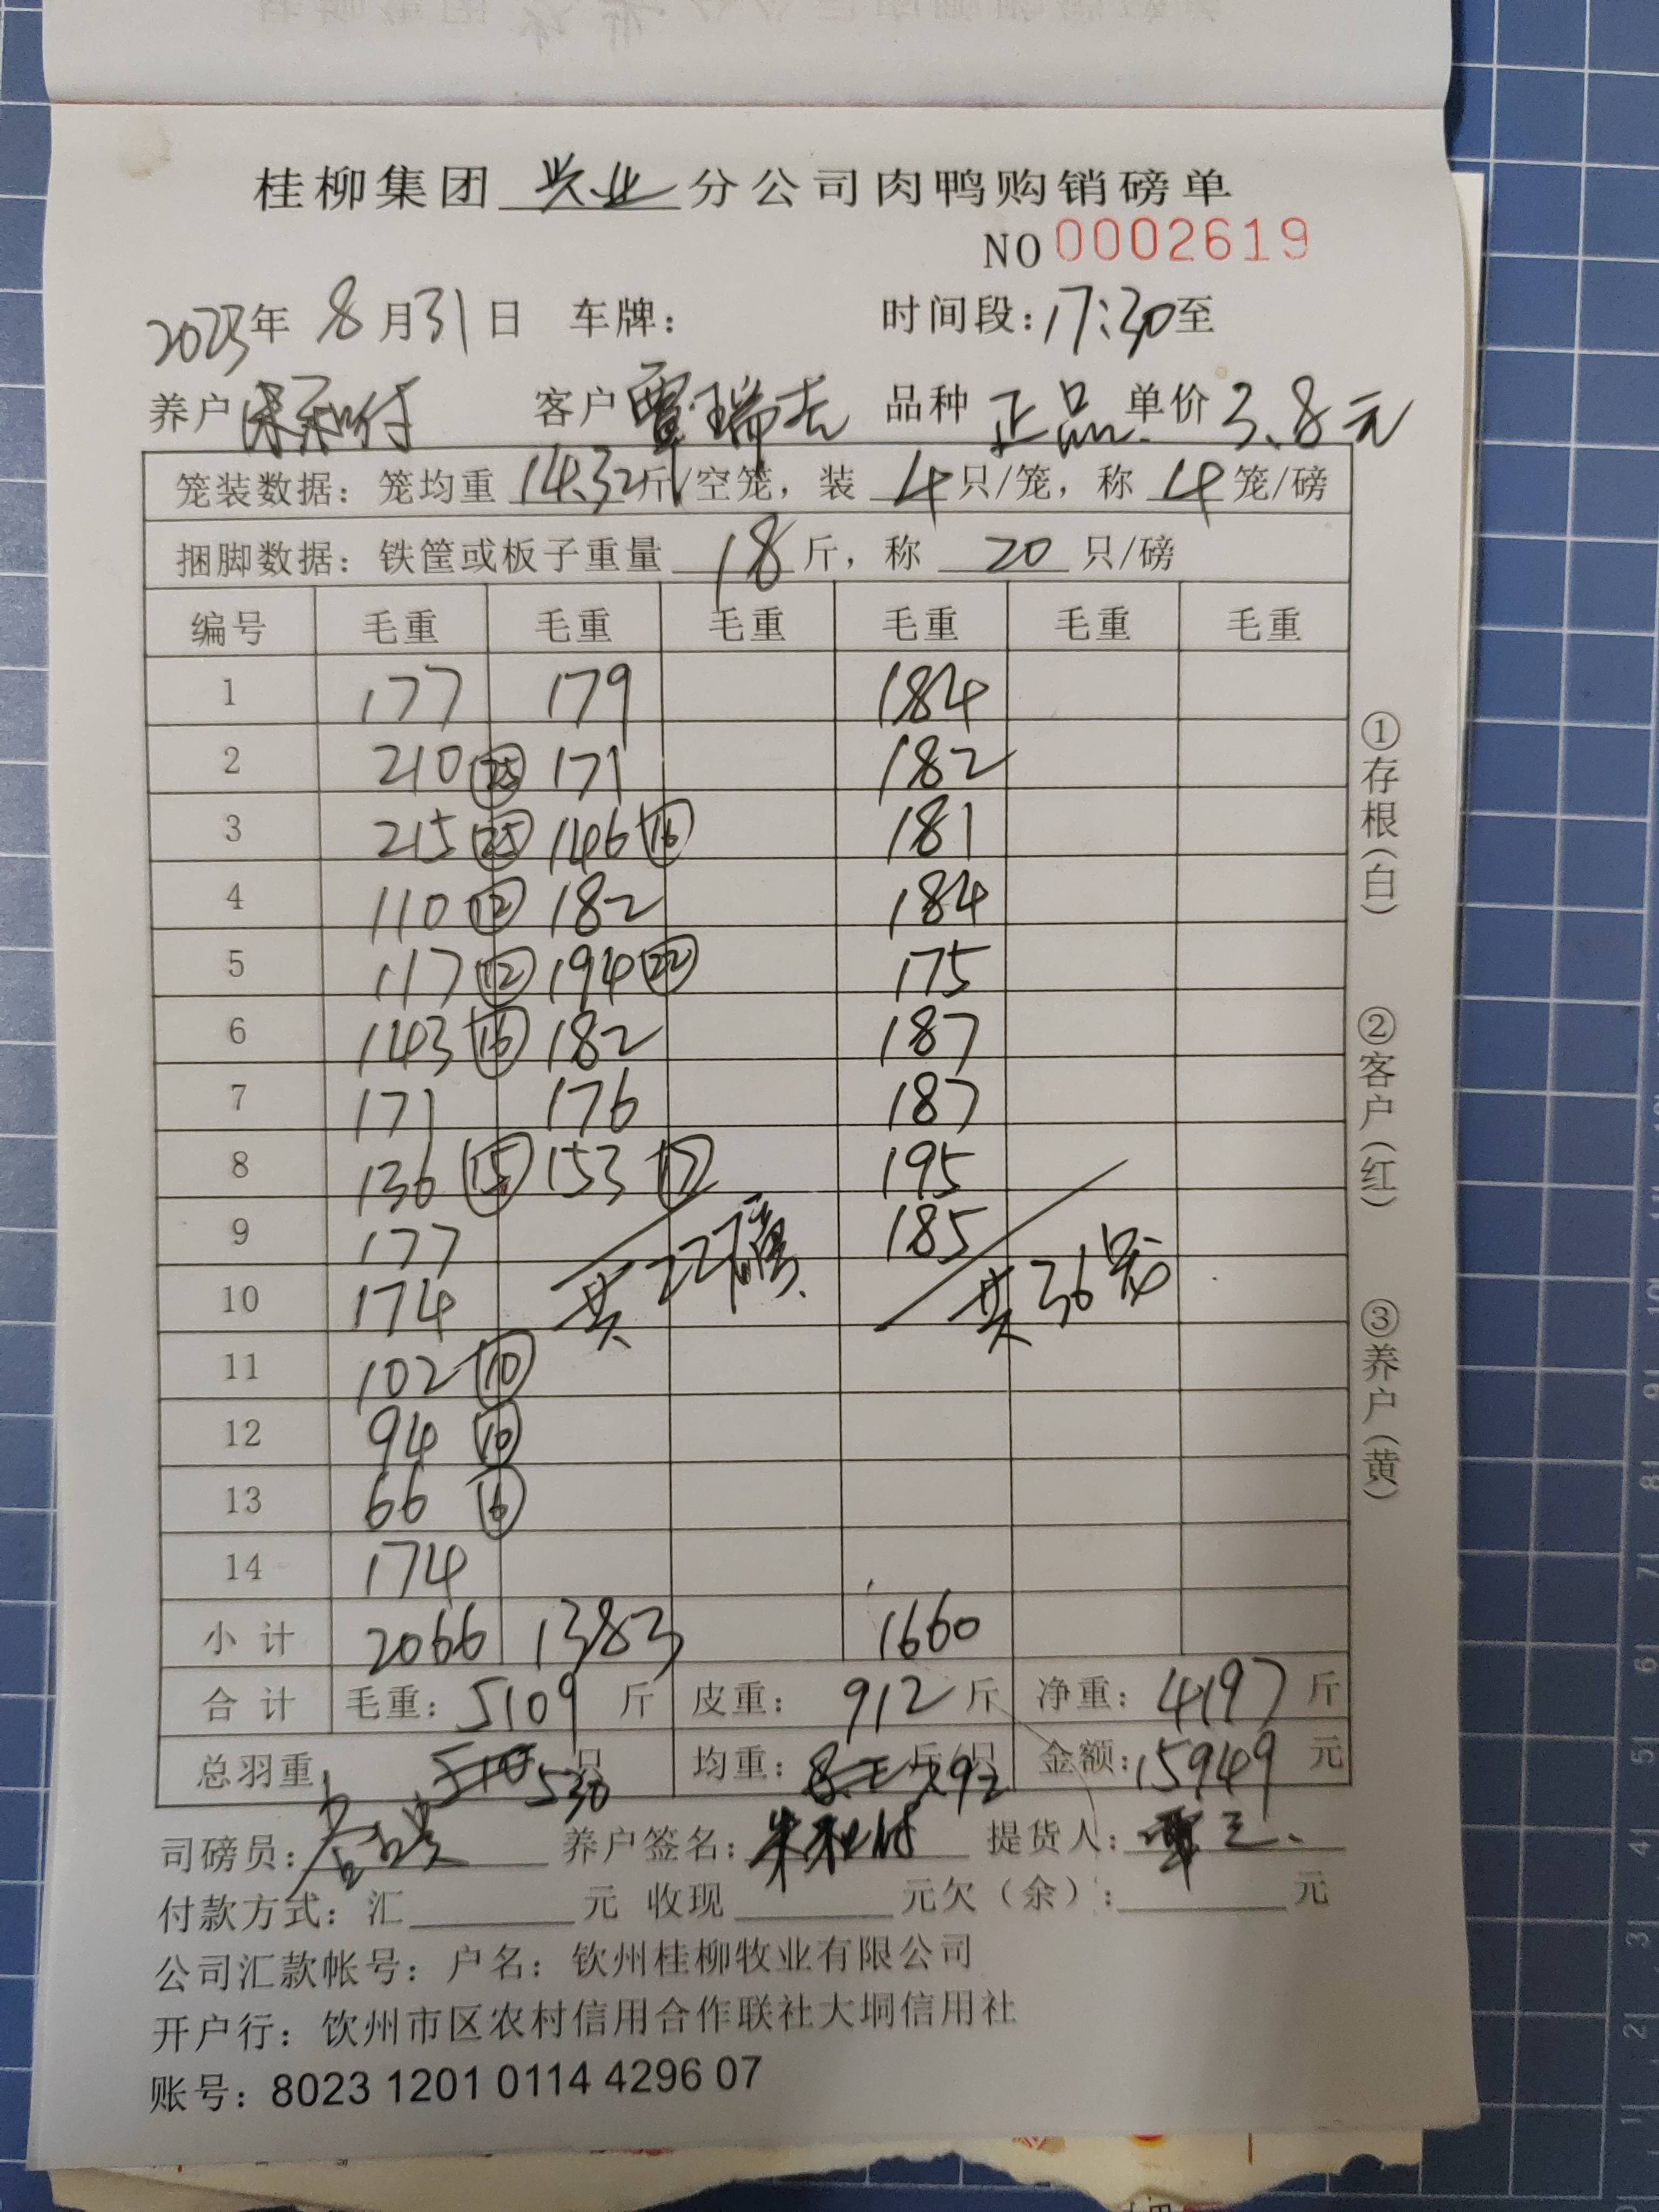 桂柳集团 兴业 分公司肉鸭购销磅单
NO 0002619
2023年 8月31日 车牌： 时间段：17:30至
养户 客户 覃瑞 品种 正品 单价 3.8元
笼装数据：笼均重 14.32斤/空笼，装 4 只/笼，称 4 笼/磅
捆脚数据：铁筐或板子重量 18 斤，称 20 只/磅
编号 毛重 毛重 毛重 毛重 毛重 毛重
1 177 179 184
2 210 25 171 182
3 215 25 146 16 181
4 110 12 182 184
5 117 12 194 22 175
6 143 16 182 187
7 171 176 187
8 136 15 153 17 195
9 177 185
共22磅 共36笼
10 174
11 102 10
12 94 10
13 66 6
14 174
小计 2066 1383 1660
合计 毛重：5109 斤 皮重：912斤 净重：4197斤
总羽重 510 530 只 均重：7.92 斤/只 金额：15949元
司磅员： 养户签名： 提货人：
付款方式：汇 元 收现 元欠（余）： 元
公司汇款帐号：户名：钦州桂柳牧业有限公司
开户行：钦州市区农村信用合作联社大垌信用社
账号：8023 1201 0114 4296 07
①存根（白）
②客户（红）
③养户（黄）